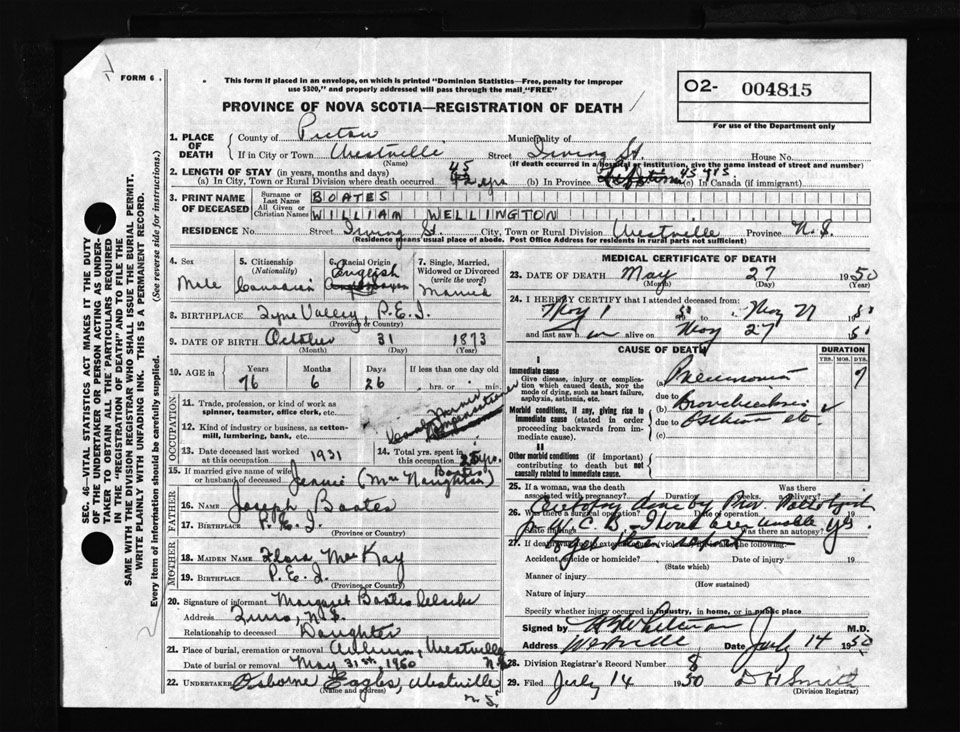 FORM 6
This form if placed in an envelope, on which is printed "Dominion Statistics—Free, penalty for improper
use $300," and properly addressed will pass through the mail "FREE"
PROVINCE OF NOVA SCOTIA—REGISTRATION OF DEATH
O2- 004815
For use of the Department only
SEC. 46—VITAL STATISTICS ACT MAKES IT THE DUTY
OF THE UNDERTAKER OR PERSON ACTING AS UNDER-
TAKER TO OBTAIN ALL THE PARTICULARS REQUIRED
IN THE "REGISTRATION OF DEATH" AND TO FILE THE
SAME WITH THE DIVISION REGISTRAR WHO SHALL ISSUE THE BURIAL PERMIT.
WRITE PLAINLY WITH UNFADING INK. THIS IS A PERMANENT RECORD.
Every item of information should be carefully supplied. (See reverse side for instructions.)
1. PLACE OF DEATH
County of Pictou Municipality of
If in City or Town Westville Street Irving St. House No.
(Name) (If death occurred in a hospital or institution, give the name instead of street and number)
2. LENGTH OF STAY (in years, months and days)
(a) In City, Town or Rural Division where death occurred 45 yrs (b) In Province 45 yrs. (c) In Canada (if immigrant)
3. PRINT NAME OF DECEASED
Surname or Last Name BOATES
All Given or Christian Names WILLIAM WELLINGTON
RESIDENCE No. Street Irving St. City, Town or Rural Division Westville Province N.S.
(Residence means usual place of abode. Post Office Address for residents in rural parts not sufficient)
4. Sex Male
5. Citizenship (Nationality) Canadian
6. Racial Origin English
7. Single, Married, Widowed or Divorced (write the word) Married
8. BIRTHPLACE Tyne Valley, P.E.I.
(Province or Country)
9. DATE OF BIRTH October 31 1873
(Month) (Day) (Year)
10. AGE in Years Months Days If less than one day old
76 6 26 hrs. or min.
OCCUPATION
11. Trade, profession, or kind of work as spinner, teamster, office clerk, etc.
12. Kind of industry or business, as cotton-mill, lumbering, bank, etc.
13. Date deceased last worked at this occupation 1931
14. Total yrs. spent in this occupation 25 yrs.
15. If married give name of wife or husband of deceased Jennie (MacNaughton) Boates
FATHER
16. Name Joseph Boates
17. Birthplace P.E.I.
(Province or Country)
MOTHER
18. MAIDEN NAME Flora MacKay
19. BIRTHPLACE P.E.I.
(Province or Country)
20. Signature of informant Margaret Boates
Address Truro, N.S.
Relationship to deceased Daughter
21. Place of burial, cremation or removal Auburn, Westville N.S.
Date of burial or removal May 31st, 1950
22. UNDERTAKER Osborne Eagles, Westville N.S.
(Name and address)
MEDICAL CERTIFICATE OF DEATH
23. DATE OF DEATH May 27 1950
(Month) (Day) (Year)
24. I HEREBY CERTIFY that I attended deceased from:
May 1 19 50 to May 27 19 50
and last saw him alive on May 27 19 50
CAUSE OF DEATH
DURATION
YRS. MOS. DYS.
I
Immediate cause
Give disease, injury or complication which caused death, NOT the mode of dying, such as heart failure, asphyxia, asthenia, etc.
(a) Pneumonia 7
due to
Morbid conditions, if any, giving rise to immediate cause (stated in order proceeding backwards from immediate cause).
(b)
due to etc.
(c)
II
Other morbid conditions (if important) contributing to death but not causally related to immediate cause.
25. If a woman, was the death associated with pregnancy? Duration weeks. Was there a delivery?
26. Was there a surgical operation? Date of operation 19
State findings Was there an autopsy? yes
Autopsy done by Prov. Pathologist
for W.C.B. — I have been unable
to get their report
27. If death was due to external causes (violence) fill in also the following:
Accident, suicide or homicide? Date of injury 19
(State which)
Manner of injury
(How sustained)
Nature of injury
Specify whether injury occurred in industry, in home, or in public place
Signed by Whitman M.D.
Address Westville Date July 14 1950
28. Division Registrar's Record Number 8
29. Filed July 14 1950 D H Smith
(Division Registrar)